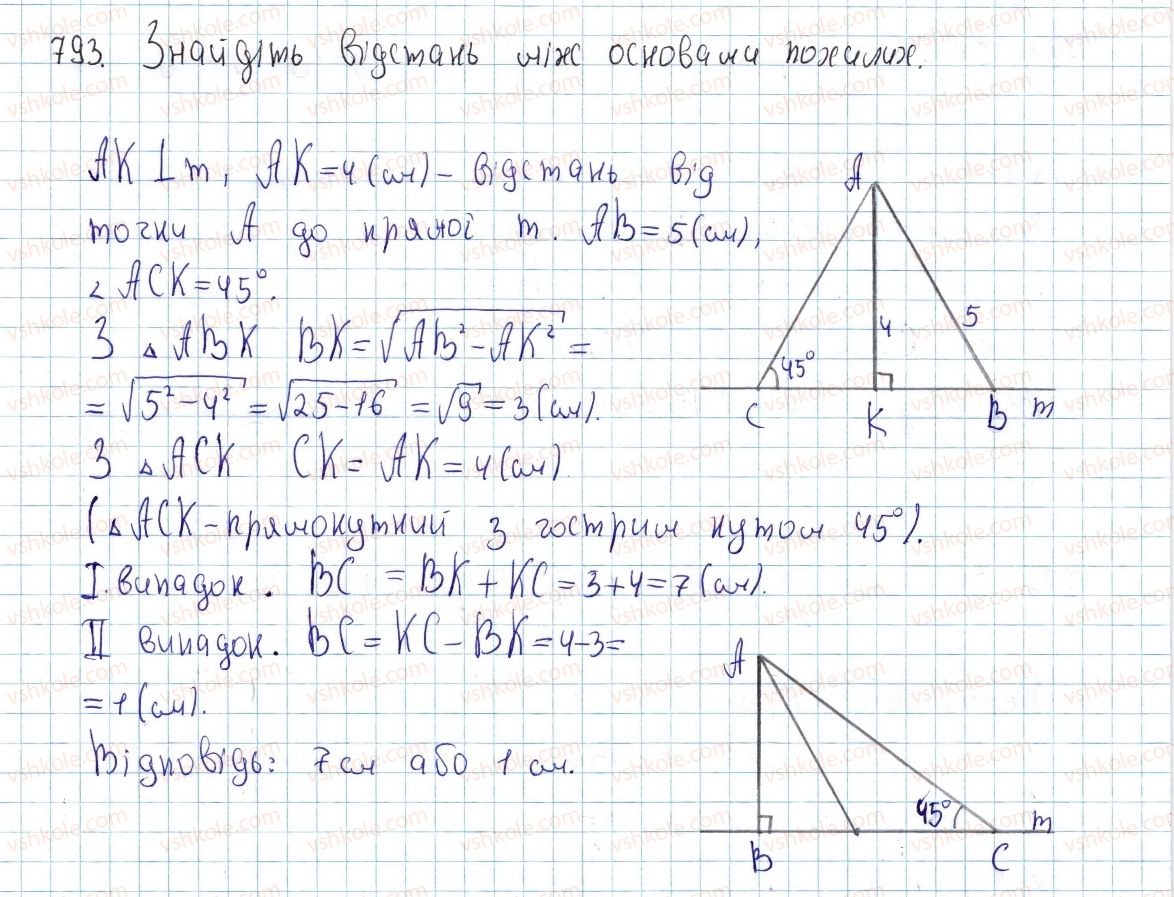 793. Знайдіть відстань між основами похилих.
AK ⊥ m, AK = 4 (см) – відстань від
точки A до прямої m. AB = 5 (см),
∠ ACK = 45°.
З △ ABK BK = √(AB² – AK²) =
= √(5² – 4²) = √(25 – 16) = √9 = 3 (см).
З △ ACK CK = AK = 4 (см)
(△ ACK – прямокутний з гострим кутом 45°).
I. випадок. BC = BK + KC = 3 + 4 = 7 (см).
II випадок. BC = KC – BK = 4 – 3 =
= 1 (см).
Відповідь: 7 см або 1 см.
A
4
5
45°
C K B m
A
45°
m
B C
vshkole.com